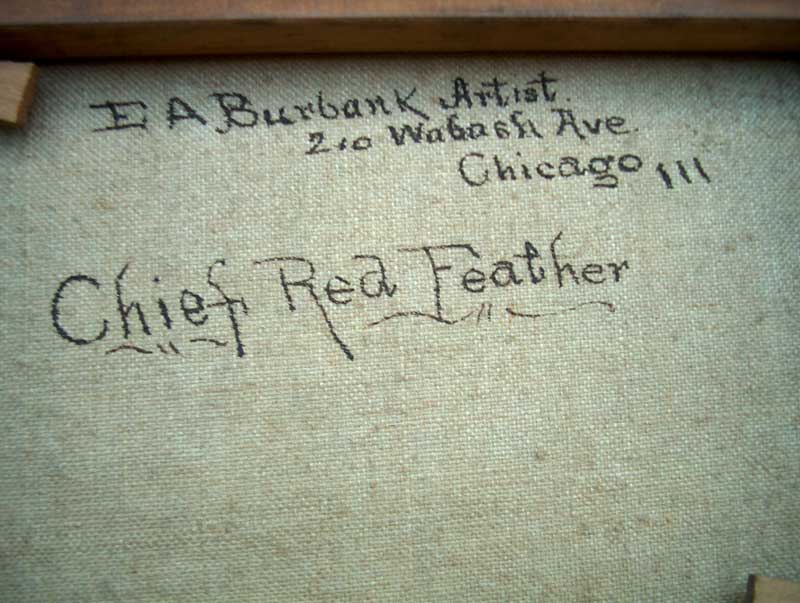 E A Burbank Artist.
210 Wabash Ave.
Chicago Ill
Chief Red Feather